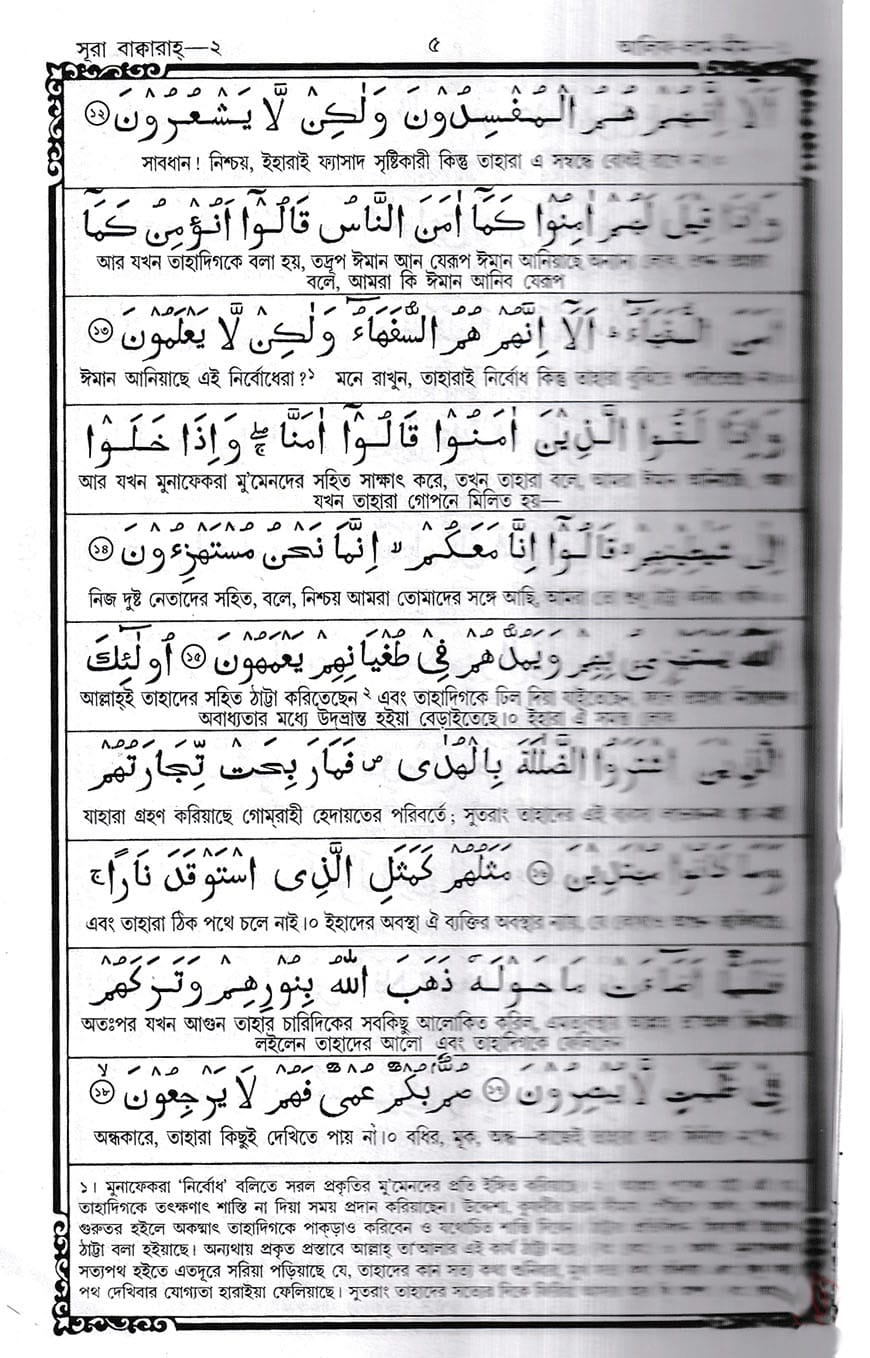 সূরা বাক্বারাহ্—২ ৫ আলিফ-লাম-মীম—
اَلَاۤ اِنَّهُمْ هُمُ الْمُفْسِدُوْنَ وَلٰكِنْ لَّا يَشْعُرُوْنَ ১২
সাবধান! নিশ্চয়, ইহারাই ফ্যাসাদ সৃষ্টিকারী কিন্তু তাহারা এ সম্বন্ধে
وَاِذَا قِيْلَ لَهُمْ اٰمِنُوْا كَمَاۤ اٰمَنَ النَّاسُ قَالُوْۤا اَنُؤْمِنُ كَمَاۤ
আর যখন তাহাদিগকে বলা হয়, তদ্রূপ ঈমান আন যেরূপ ঈমান আনিয়াছে
বলে, আমরা কি ঈমান আনিব যেরূপ
اٰمَنَ السُّفَهَآءُ ؕ اَلَاۤ اِنَّهُمْ هُمُ السُّفَهَآءُ وَلٰكِنْ لَّا يَعْلَمُوْنَ ১৩
ঈমান আনিয়াছে এই নির্বোধেরা?১ মনে রাখুন, তাহারাই নির্বোধ কিন্তু তাহারা
وَاِذَا لَقُوا الَّذِيْنَ اٰمَنُوْا قَالُوْۤا اٰمَنَّا ۖۚ وَاِذَا خَلَوْا
আর যখন মুনাফেকরা মু’মেনদের সহিত সাক্ষাৎ করে, তখন তাহারা বলে, আমরা ঈমান
যখন তাহারা গোপনে মিলিত হয়—
اِلٰى شَيٰطِيْنِهِمْ ۙ قَالُوْۤا اِنَّا مَعَكُمْ ۙ اِنَّمَا نَحْنُ مُسْتَهْزِءُوْنَ ১৪
নিজ দুষ্ট নেতাদের সহিত, বলে, নিশ্চয় আমরা তোমাদের সঙ্গে আছি, আমরা
اَللّٰهُ يَسْتَهْزِئُ بِهِمْ وَيَمُدُّهُمْ فِيْ طُغْيَانِهِمْ يَعْمَهُوْنَ ১৫ اُولٰٓئِكَ
আল্লাহ্ই তাহাদের সহিত ঠাট্টা করিতেছেন ২ এবং তাহাদিগকে ঢিল দিয়া যাইতেছেন,
অবাধ্যতার মধ্যে উদভ্রান্ত হইয়া বেড়াইতেছে।০ ইহারা ঐ সমস্ত লোক
الَّذِيْنَ اشْتَرَوُا الضَّلٰلَةَ بِالْهُدٰى ۪ فَمَا رَبِحَتْ تِّجَارَتُهُمْ
যাহারা গ্রহণ করিয়াছে গোম্‌রাহী হেদায়তের পরিবর্তে; সুতরাং তাহাদের এই
وَمَا كَانُوْا مُهْتَدِيْنَ ১৬ مَثَلُهُمْ كَمَثَلِ الَّذِى اسْتَوْقَدَ نَارًا ۚ
এবং তাহারা ঠিক পথে চলে নাই।০ ইহাদের অবস্থা ঐ ব্যক্তির অবস্থার ন্যায়, যে
فَلَمَّاۤ اَضَآءَتْ مَا حَوْلَهٗ ذَهَبَ اللّٰهُ بِنُوْرِهِمْ وَتَرَكَهُمْ
অতঃপর যখন আগুন তাহার চারিদিকের সবকিছু আলোকিত করিল,
লইলেন তাহাদের আলো এবং তাহাদিগকে ফেলিলেন
فِيْ ظُلُمٰتٍ لَّا يُبْصِرُوْنَ ১৭ صُمٌّۢ بُكْمٌ عُمْىٌ فَهُمْ لَا يَرْجِعُوْنَ ۙ ১৮
অন্ধকারে, তাহারা কিছুই দেখিতে পায় না।০ বধির, মূক, অন্ধ—কাজেই তাহারা
১। মুনাফেকরা ‘নির্বোধ’ বলিতে সরল প্রকৃতির মু’মেনদের প্রতি ইঙ্গিত
তাহাদিগকে তৎক্ষণাৎ শাস্তি না দিয়া সময় প্রদান করিয়াছেন। উদ্দেশ্য,
গুরুতর হইলে অকস্মাৎ তাহাদিগকে পাকড়াও করিবেন ও যথোচিত শাস্তি দিবেন।
ঠাট্টা বলা হইয়াছে। অন্যথায় প্রকৃত প্রস্তাবে আল্লাহ্ তা’আলার এই কার্য ঠাট্টা
সত্যপথ হইতে এতদূরে সরিয়া পড়িয়াছে যে, তাহাদের কান সত্য কথা
পথ দেখিবার যোগ্যতা হারাইয়া ফেলিয়াছে। সুতরাং তাহাদের সত্যের দিকে